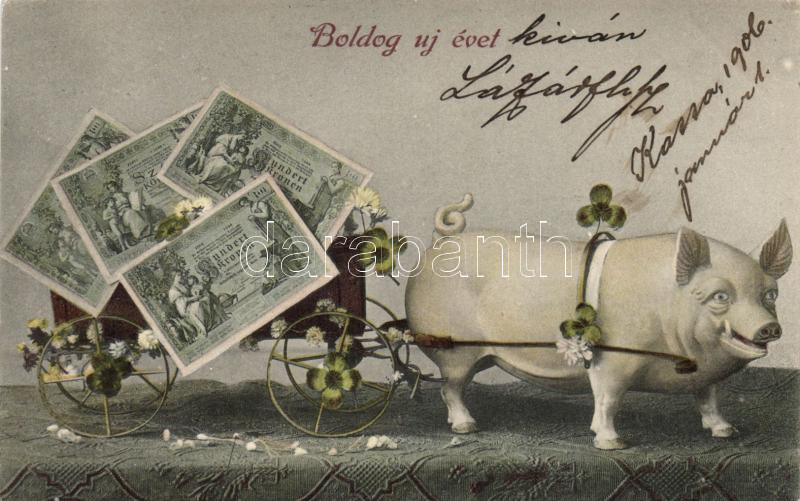 Boldog uj évet kiván
Kassa, 1906.
január 1.
Hundert
Kronen
Hundert
Kronen
darabanth